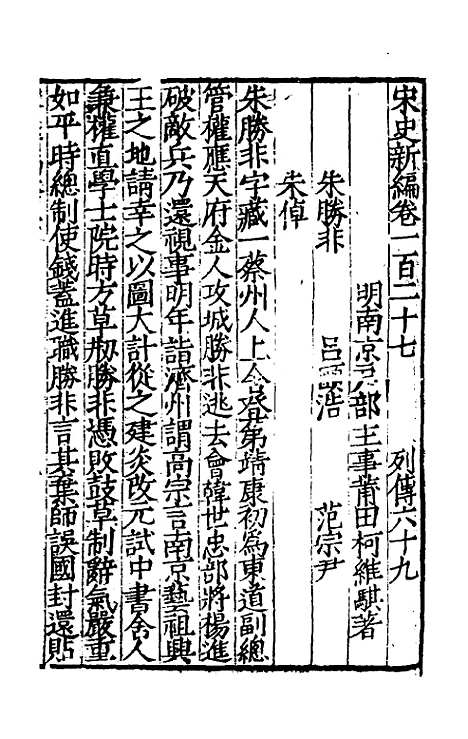 宋史新編卷一百二十七 列傳六十九
明南京戶部主事莆田柯維騏著
朱勝非 呂頤浩 范宗尹
朱倬
朱勝非字藏一蔡州人上舍登第靖康初為東道副總
管權應天府金人攻城勝非逃去會韓世忠部將楊進
破敵兵乃還視事明年詣濟州謂高宗言南京藝祖興
王之地請幸之以圖大計從之建炎改元試中書舍人
兼權直學士院時方草刱勝非憑敗鼓草制辭氣嚴重
如平時總制使錢蓋進職勝非言其棄師誤國封還貼